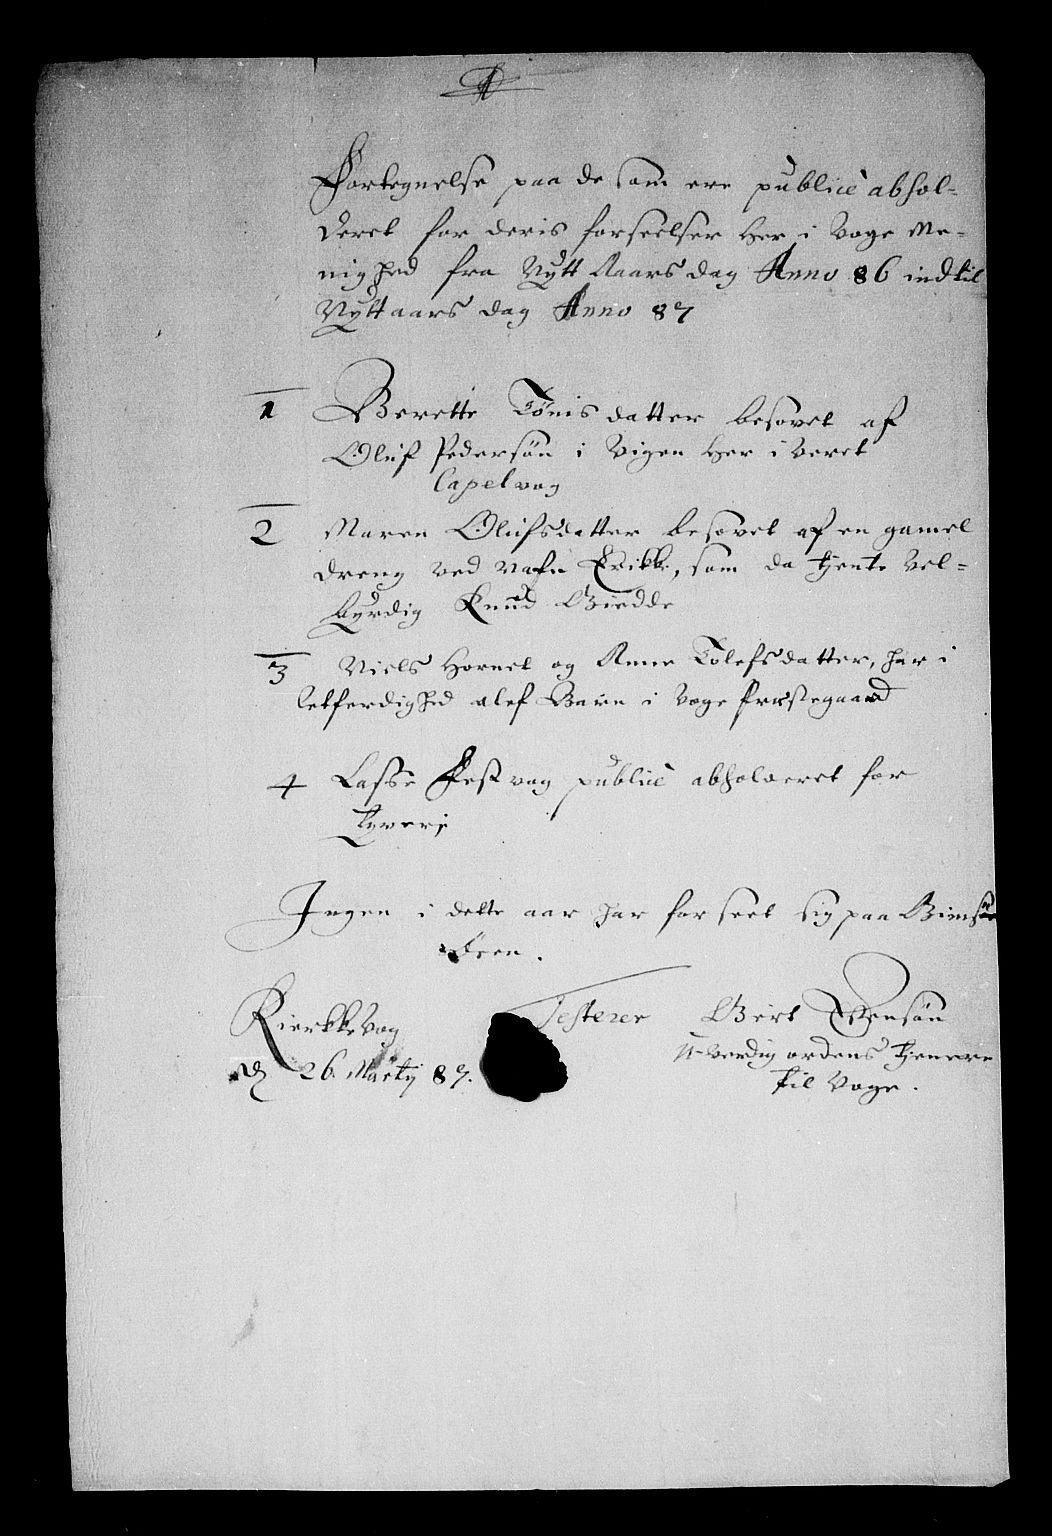 Fortegnelse paa de som ere publicè abhol-
veret for deris forseelser her i Voge Me-
nighed fra Nytt Aars dag Anno 86 indtil
Nytt aars dag Anno 87
1 Berette Tønis datter besovet af
Oluf Pedersøn i Vigen her i Veret
Capelvog
2 Maren Olufsdatter besovet af en gamel
dreng ved nafn Erikk, som da tjente Vel-
byrdig Knud Giedde
3 Niels Hornet og Anne Tolefsdatter, har i
letferdighed alef Barn i Voge Præstegaard
4 Lasse Festvog publicè abholveret for
Tyveri
Ingen i dette aar har forseet sig paa
Kierkkevog Testerer Gert Evensøn
d 26 Martij 87. U-verdig ordens tjenere
til Voge.